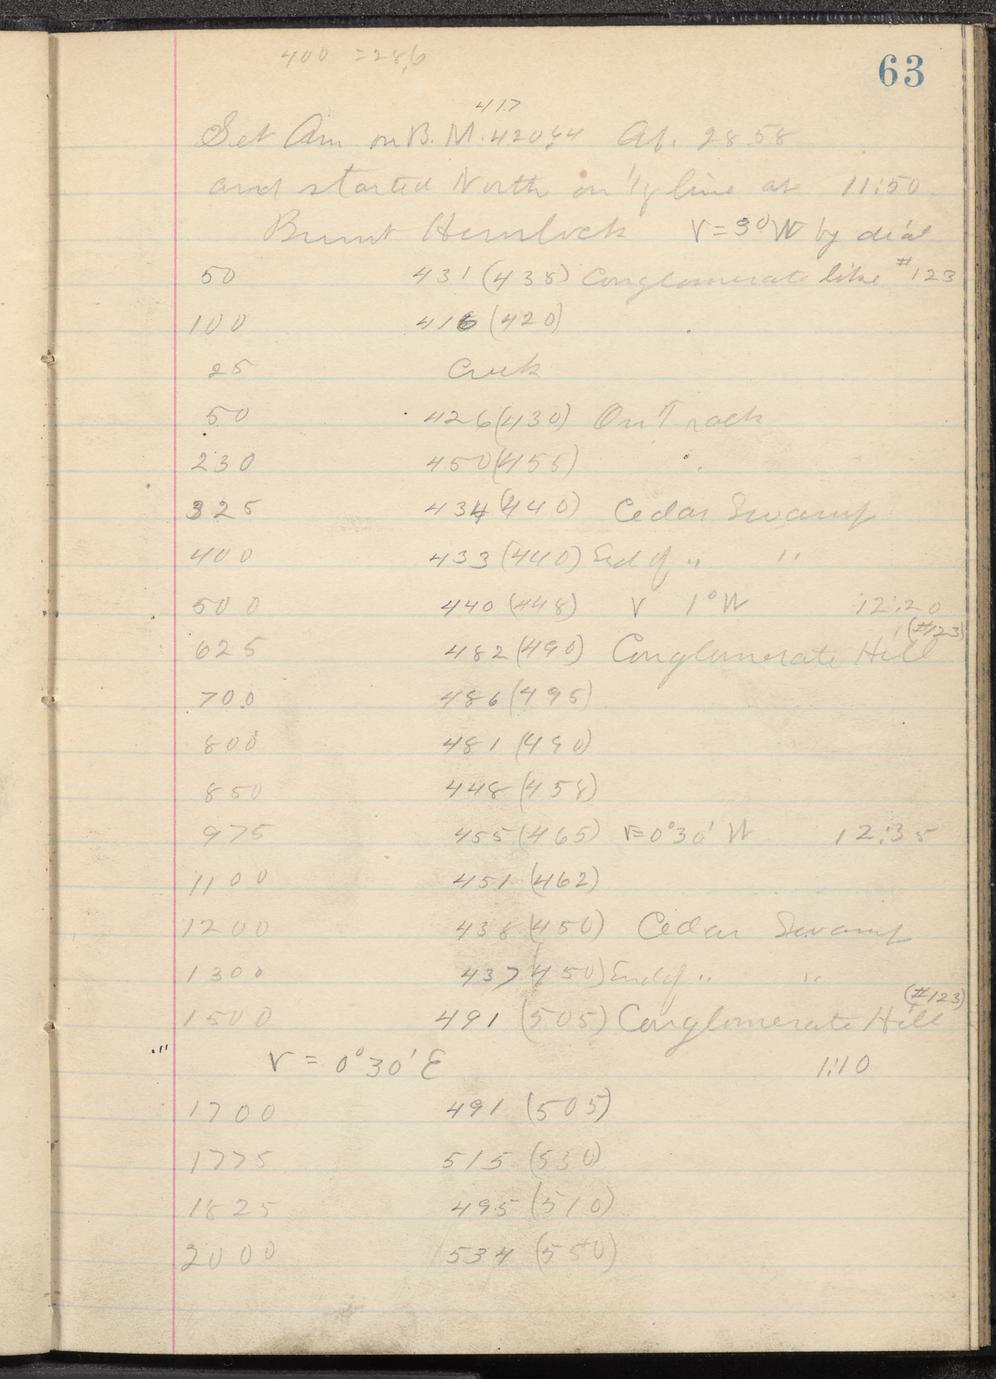 400 = 28.6
63
417
Set An. on B.M. 420.64 At. 28.58
and started North on 1/4 line at 11:50
Burnt Hemlock V = 3° W by dial
50 431 (438) Conglomerate like #123
100 416 (420)
25 Creek
50 426 (430) On Track
230 450 (455)
325 434 (440) Cedar Swamp
400 433 (440) End of " "
500 440 (448) V 1° W 12:20
(#123)
625 482 (490) Conglomerate Hill
700 486 (495)
800 481 (490)
850 448 (458)
975 455 (465) V = 0°30' W 12:35
1100 451 (462)
1200 438 (450) Cedar Swamp
1300 437 (450) End of " "
(#123)
1500 491 (505) Conglomerate Hill
"' V = 0°30' E 1:10
1700 491 (505)
1775 515 (530)
1825 495 (510)
2000 534 (550)